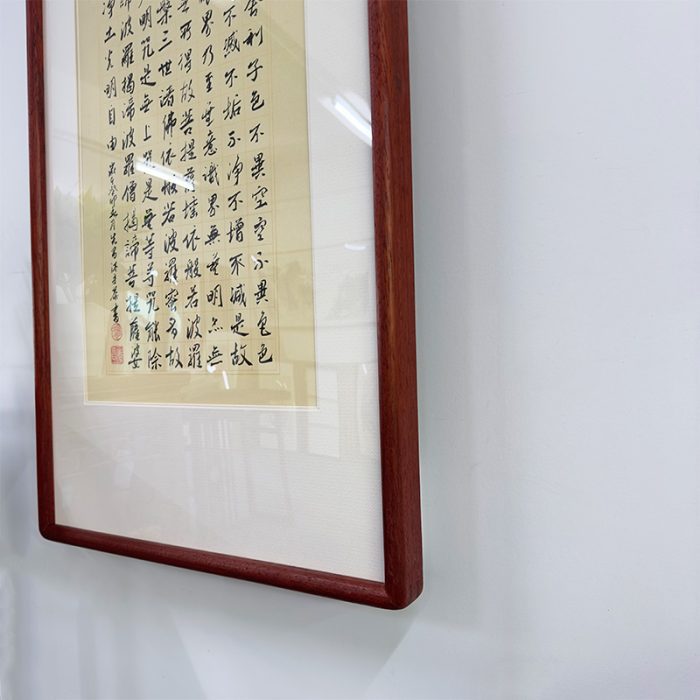 舍利子色不異空空不異色色
不滅不垢不淨不增不減是故
界乃至無意識界無無明亦無
所得故菩提薩埵依般若波羅
槃三世諸佛依般若波羅蜜多故
明咒是無上咒是無等等咒能除
諦波羅揭諦波羅僧揭諦菩提薩婆
淨土光明自由 癸卯 書